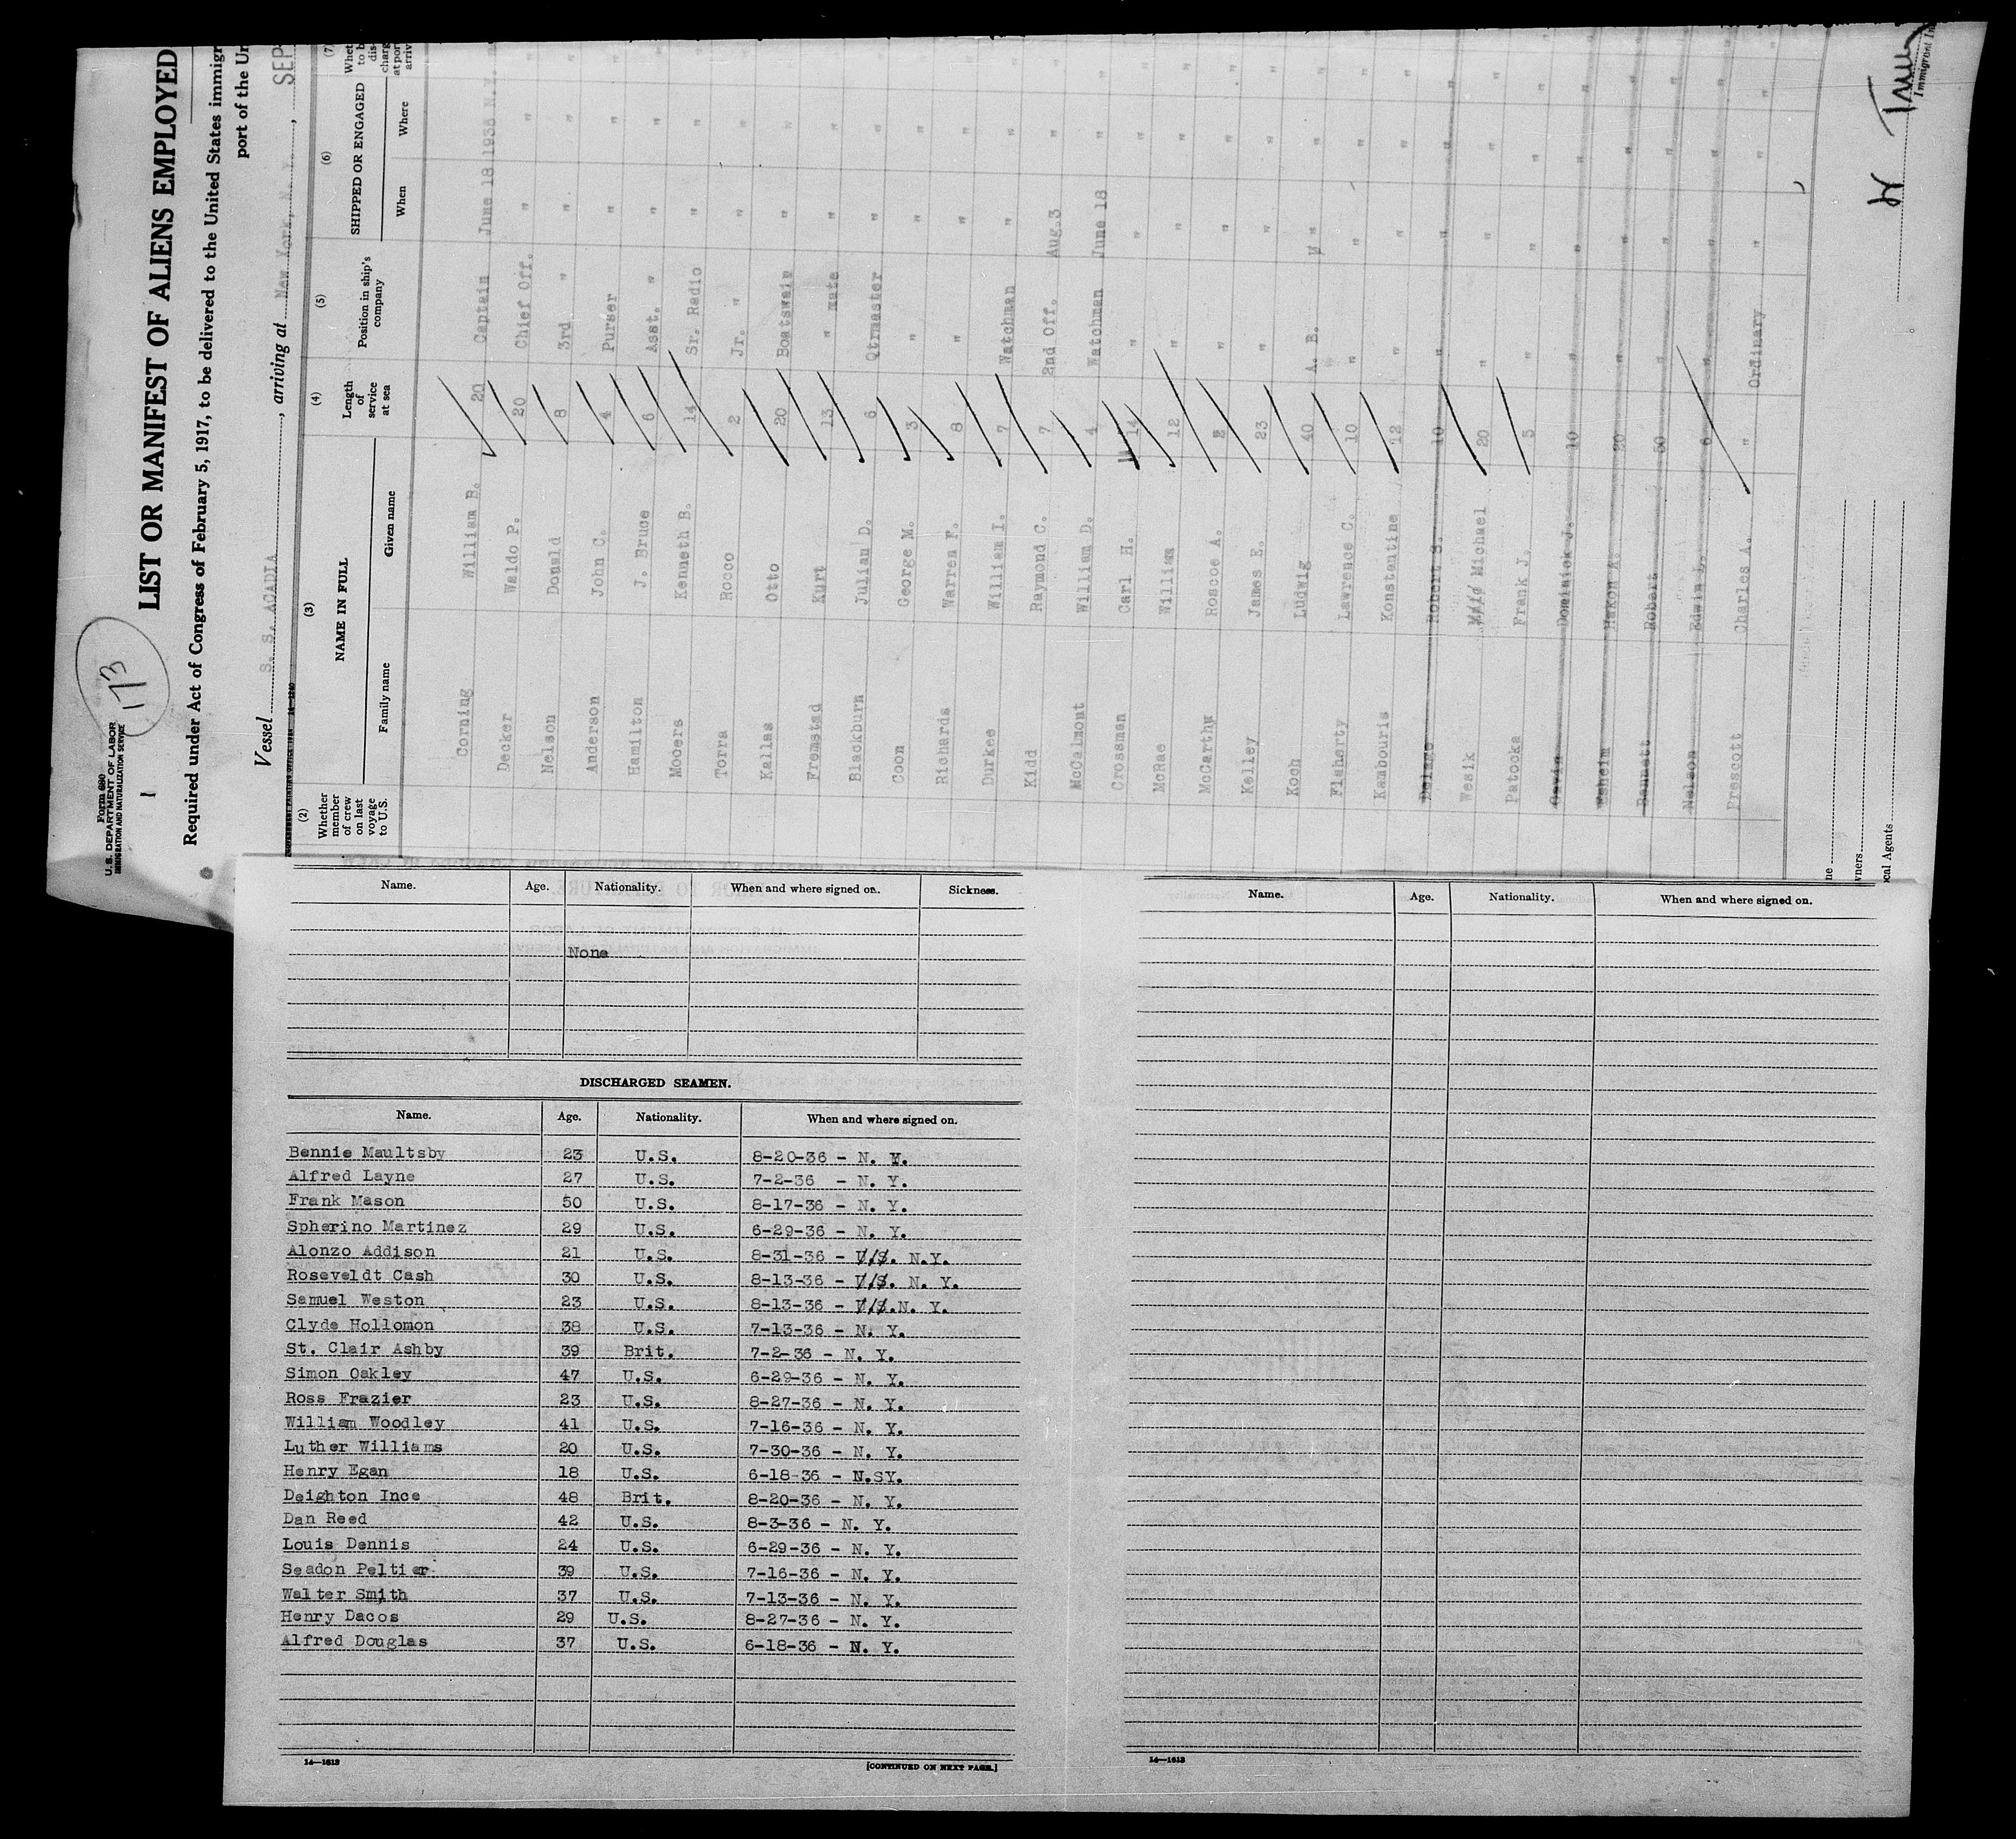 Form 680
U. S. DEPARTMENT OF LABOR
IMMIGRATION AND NATURALIZATION SERVICE
1
173
LIST OR MANIFEST OF ALIENS EMPLOYED
Required under Act of Congress of February 5, 1917, to be delivered to the United States immigr
port of the Un
Vessel S. S. ACADIA, arriving at New York, N. Y., SEP
(2) (3) (4) (5) (6) (7)
Whether member of crew on last voyage to U.S. NAME IN FULL Length of service at sea Position in ship's company SHIPPED OR ENGAGED Whet to b dis- charg at port arriv
Family name Given name When Where
Corning William B. 20 Captain June 18 1936 N.Y. "
Decker Waldo P. 20 Chief Off. " " "
Nelson Donald 8 3rd " " " "
Anderson John C. 4 Purser " " "
Hamilton J. Bruce 6 Asst. " " " "
Mooers Kenneth B. 14 Sr. Radio " " "
Torra Rocco 2 Jr. " " " "
Kallas Otto 20 Boatswain " " "
Fremstad Kurt 13 " mate " " "
Blackburn Julian D. 6 Qtrmaster " " "
Coon George M. 3 " " " "
Richards Warren F. 8 " " " "
Durkee William I. 7 Watchman " " "
Kidd Raymond C. 7 2nd Off. Aug.3 " "
McCalmont William D. 4 Watchman June 18 " "
Crossman Carl H. 14 " " " "
McRae William 12 " " " "
McCarthy Roscoe A. " " " "
Kelley James E. 23 " " " "
Koch Ludwig 40 A. B. " " "
Flaherty Lawrence C. 10 " " " "
Kambouris Konstantine 12 " " " "
Delage Robert S. 10 " " " "
Wesik Michael 20 " " " "
Patocka Frank J. 5 " " " "
Gavin Dominick J. 10 " " " "
Esheim Hakon A. 20 " " " "
Bennett Robert 30 " " " "
Nelson Edwin L. 6 " " " "
Prescott Charles A. " Ordinary " " "
Immigrant In
ne
wners
cal Agents
Name. Age. Nationality. When and where signed on. Sickness.
None
DISCHARGED SEAMEN.
Name. Age. Nationality. When and where signed on.
Bennie Maultsby 23 U.S. 8-20-36 - N. Y.
Alfred Layne 27 U.S. 7-2-36 - N. Y.
Frank Mason 50 U.S. 8-17-36 - N. Y.
Spherino Martinez 29 U.S. 6-29-36 - N. Y.
Alonzo Addison 21 U.S. 8-31-36 - U.S. N.Y.
Roseveldt Cash 30 U.S. 8-13-36 - U.S. N. Y.
Samuel Weston 23 U.S. 8-13-36 - U.S.N. Y.
Clyde Hollomon 38 U.S. 7-13-36 - N. Y.
St. Clair Ashby 39 Brit. 7-2-36 - N. Y.
Simon Oakley 47 U.S. 6-29-36 - N. Y.
Ross Frazier 23 U.S. 8-27-36 - N. Y.
William Woodley 41 U.S. 7-16-36 - N. Y.
Luther Williams 20 U.S. 7-30-36 - N. Y.
Henry Egan 18 U.S. 6-18-36 - N.SY.
Deighton Ince 48 Brit. 8-20-36 - N. Y.
Dan Reed 42 U.S. 8-3-36 - N. Y.
Louis Dennis 24 U.S. 6-29-36 - N. Y.
Seadon Peltier 39 U.S. 7-16-36 - N. Y.
Walter Smith 37 U.S. 7-13-36 - N. Y.
Henry Dacos 29 U.S. 8-27-36 - N. Y.
Alfred Douglas 37 U.S. 6-18-36 - N. Y.
14—1613
[CONTINUED ON NEXT PAGE.]
Name. Age. Nationality. When and where signed on.
14—1613